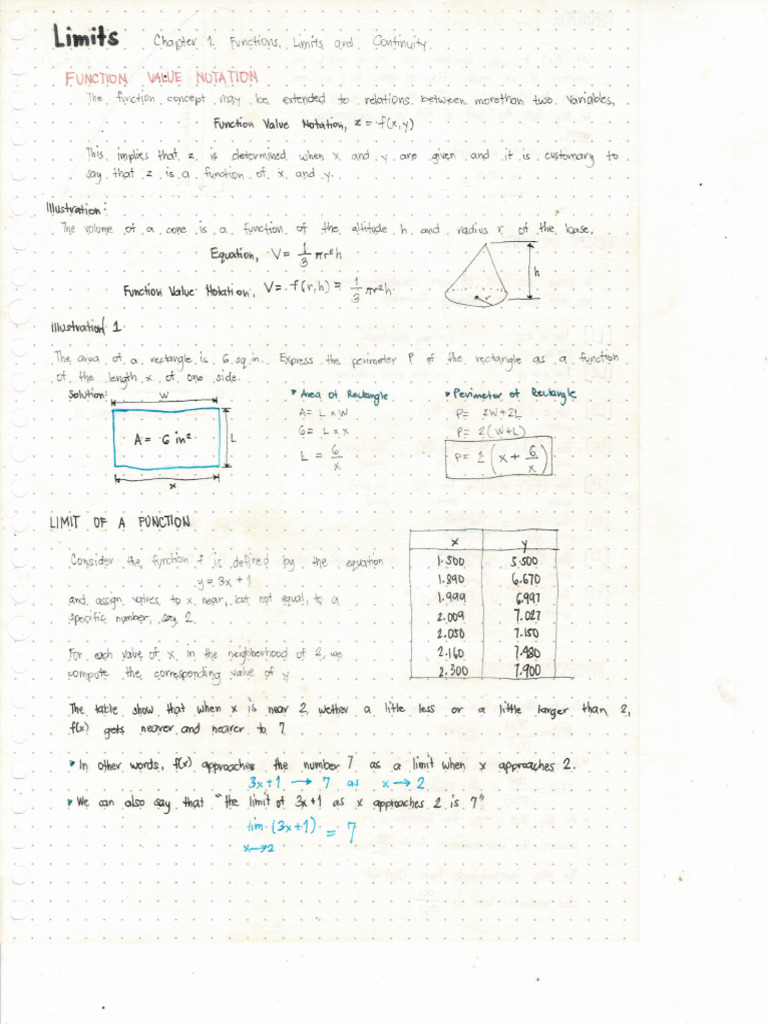 Limits Chapter 1. Functions, Limits and Continuity.
FUNCTION VALUE NOTATION
The function concept may be extended to relations between morethan two variables,
Function Value Notation, z = f(x,y)
This implies that z is determined when x and y are given and it is customary to
say that z is a function of x and y.
Illustration:
The volume of a cone is a function of the altitude h and radius r of the base.
Equation, V = 1/3 πr²h
Function Value Notation, V = f(r,h) = 1/3 πr²h
h
r
Illustration 1
The area of a rectangle is 6 sq.in. Express the perimeter P of the rectangle as a function
of the length x of one side.
Solution:
W
A = 6 in²
L
x
Area of Rectangle
A = L x W
6 = L x x
L = 6/x
Perimeter of Rectangle
P = 2W + 2L
P = 2(W+L)
P = 2(x + 6/x)
LIMIT OF A FUNCTION
Consider the function f is defined by the equation
y = 3x + 1
and assign values to x near, but not equal, to a
specific number, say 2.
For each value of x in the neigborhood of 2, we
compute the corresponding value of y.
x y
1.500 5.500
1.890 6.670
1.999 6.997
2.009 7.027
2.050 7.150
2.160 7.480
2.300 7.900
The table show that when x is near 2, wether a little less or a little larger than 2,
f(x) gets nearer and nearer to 7.
In other words, f(x) approaches the number 7 as a limit when x approaches 2.
3x+1 → 7 as x → 2
We can also say that "the limit of 3x+1 as x approaches 2 is 7"
lim (3x+1) = 7
x→2